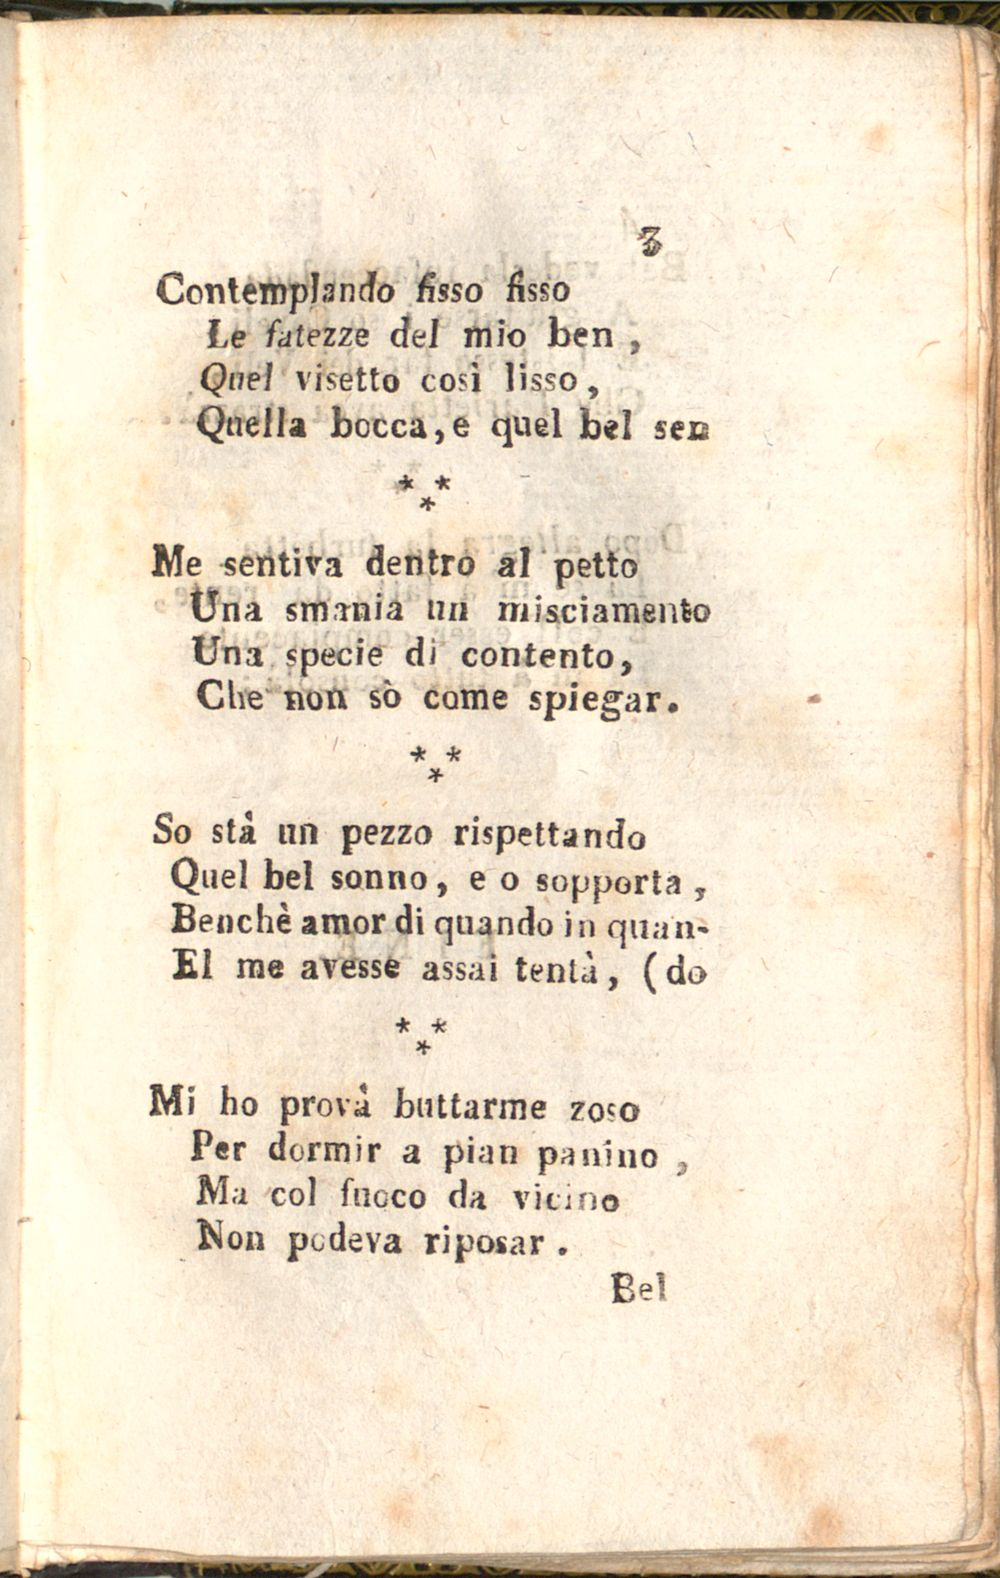 3
Contemplando fisso fisso
Le fatezze del mio ben ,
Quel visetto così lisso,
Quella bocca, e quel bel sen
* *
*
Me sentiva dentro al petto
Una smania un misciamento
Una specie di contento,
Che non sò come spiegar.
* *
*
So stà un pezzo rispettando
Quel bel sonno, e o sopporta ,
Benchè amor di quando in quan-
El me avesse assai tentà, (do
* *
*
Mi ho provà buttarme zoso
Per dormir a pian panino ,
Ma col fuoco da vicino
Non podeva riposar .
Bel